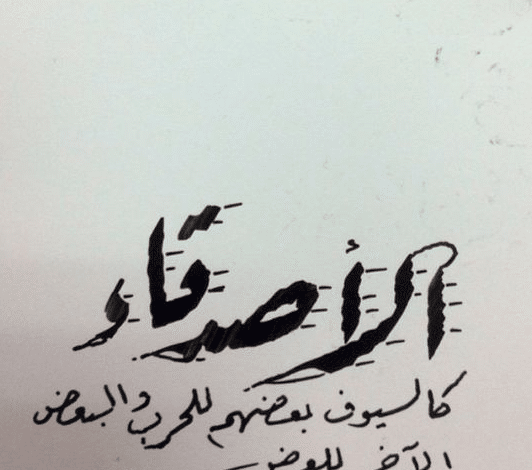 الأصدقاء
كالسيوف بعضهم للحرب والبعض
الآخر للعرض